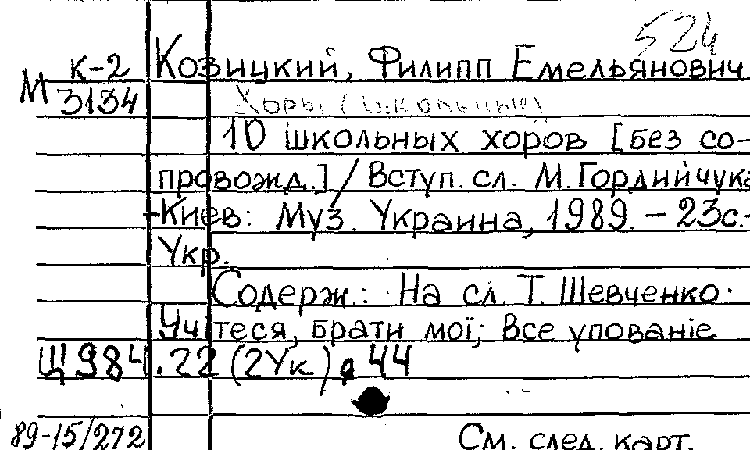 524
К-2 Козицкий, Филипп Емельянович
М 3134 Хоры (школьные)
10 школьных хоров [Без со-
провожд.] / Вступ. сл. М. Гордийчука
-Киев: Муз. Украина, 1989. - 23с.-
Укр.
Содерж.: На сл. Т. Шевченко.
Учітеся, брати мої; Все упованіе
Щ984.22(2Ук)я44
89-15/272 См. след. карт.